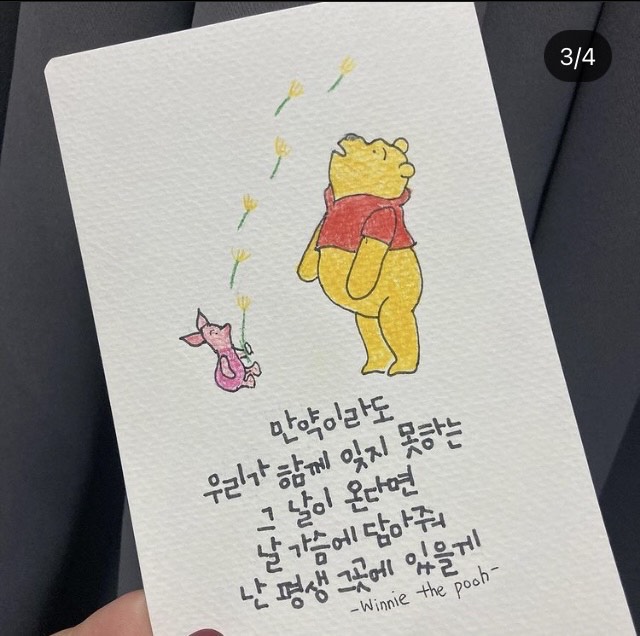 3/4
만약이라도
우리가 함께 잊지 못하는
그 날이 온다면
날 가슴에 담아줘
난 평생 그곳에 있을게
-Winnie the pooh-